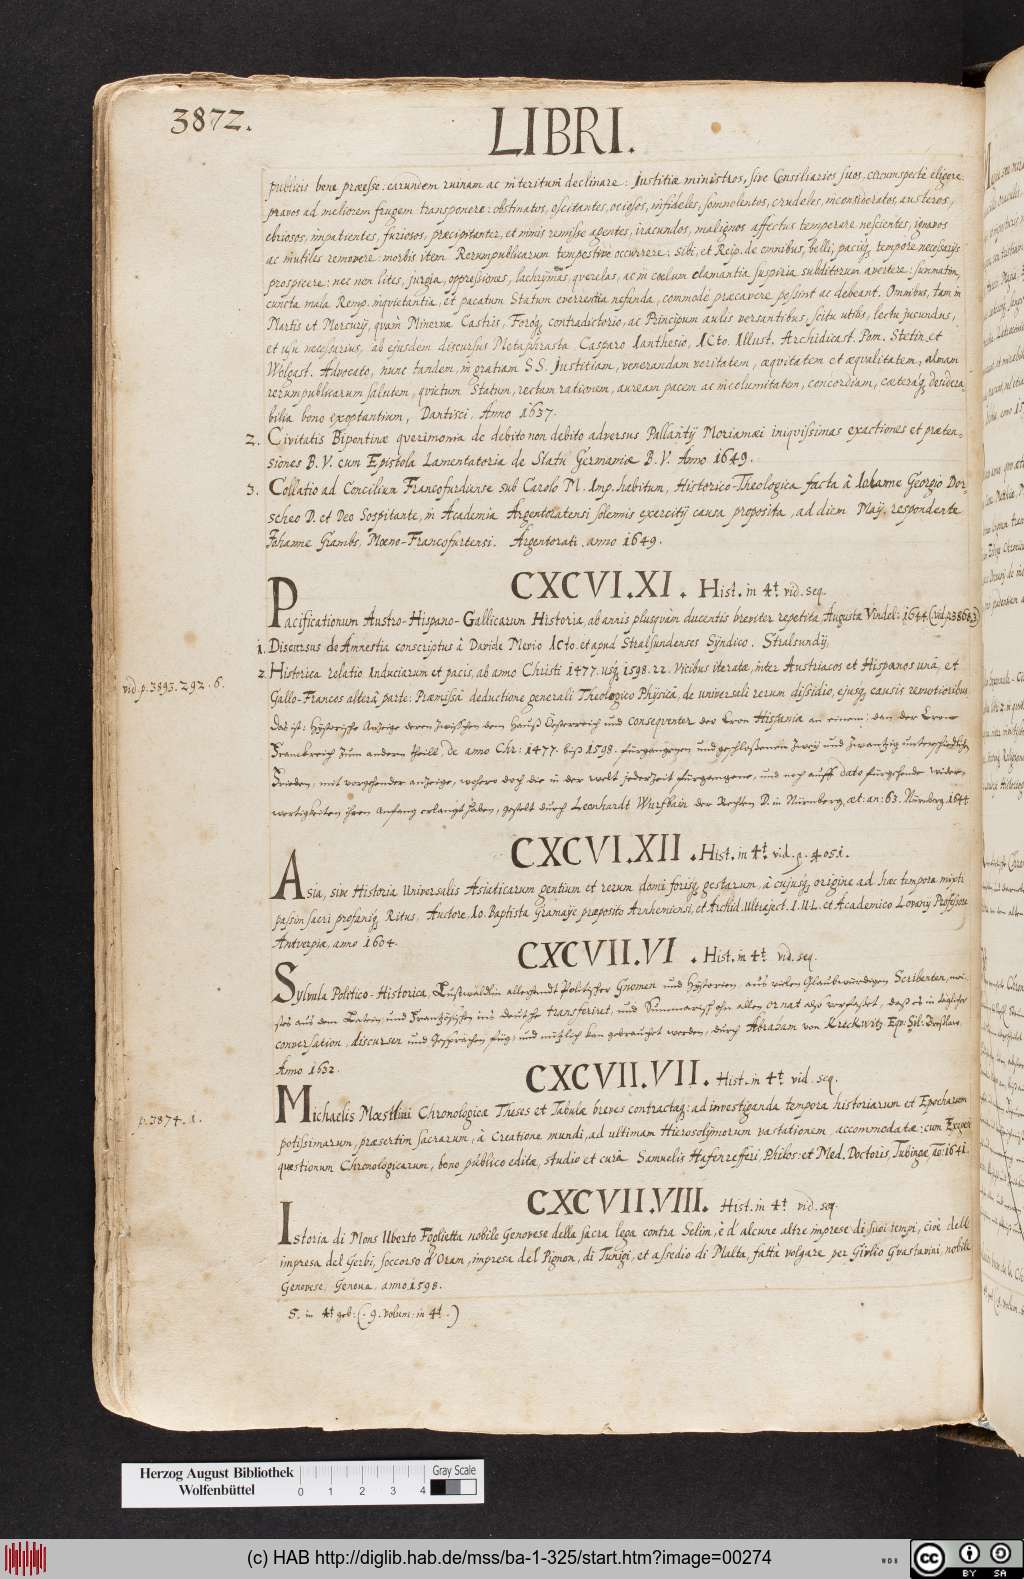 3872.
LIBRI.
publicis bene præesse, earundem ruinam ac interitum declinare: Justitiæ ministros, sive Consiliarios suos, circumspecte eligere,
pravos ad meliorem frugem transponere: obstinatos, oscitantes, ociosos, infideles, somnolentos, crudeles, inconsideratos, austeros,
ebriosos, impatientes, furiosos, præcipitanter, et nimis remisse agentes, iracundos, malignos affectus temperare nescientes, ignavos
ac inutiles removere: morbis item Rerumpublicarum tempestive occurrere: sibi, et Reip. de omnibus, belli, pacisq, tempore necessarijs
prospicere: nec non lites, jurgia, oppressiones, lachrymas, querelas, ac in cœlum clamantia suspiria subditorum avertere: summatim,
cuncta mala Remp. inquietantia, et pacatum Statum everrentia nefanda, commodè præcavere possint ac debeant. Omnibus, tam in
Martis et Mercurij, quàm Minervæ Castris, Foroq, contradictorio, ac Principum aulis versantibus, scitu utilis, lectu jucundus,
et usu necessarius, ab ejusdem discursus Metaphrasta Casparo Ianthesio, ICto. Illust. Archidicast. Pom. Stetin. et
Wolgast. Advocato, nunc tandem, in gratiam S.S. Justitiam, venerandam veritatem, æqvitatem et æqvalitatem, almam
rerumpublicarum salutem, qvietum Statum, rectam rationem, auream pacem ac incolumitatem, concordiam, cæteraq, desidera
bilia bono exoptantium, Dantisci, Anno 1637.
2. Civitatis Bipontinæ qverimonia de debito non debito adversus Pallantij Moriamæi iniqvissimas exactiones et præten-
siones B. V. cum Epistola Lamentatoria de Statu Germaniæ B. V. Anno 1649.
3. Collatio ad Concilium Francofurdense sub Carolo M. Imp. habitum, Historico-Theologica facta à Iohanne Georgio Dor-
scheo D. et Deo Sospitante, in Academia Argentoratensi solennis exercitij causa proposita, ad diem Maij, respondente
Johanne Grambs, Mœno-Francofurtensi. Argentorati, anno 1649.
CXCVI.XI. Hist. in 4t vid. seq.
Pacificationum Austro-Hispano-Gallicarum Historia, ab annis plusqvàm ducentis breviter repetita, Augusta Vindel: 1644 (vid. p. 3868.3)
1. Discursus de Amnestia conscriptus à Davide Mevio ICto. et apud Stralsundenses Syndico. Stralsundij,
2. Historica relatio Induciarum et pacis, ab anno Christi 1477. usq, 1598. 22. Vicibus iteratæ, inter Austriacos et Hispanos unâ, et
vid. p. 3893. 292. 6.
Gallo-Francos alterâ parte: Præmissâ deductione generali Theologico Physicâ, de universali rerum dissidio, ejusq, causis remotioribus
Das ist: Hystorische Anzeige deren zwischen dem Hauß Oesterreich und conseqventer der Cron Hispania an einem: dan der Cron
Franckreich zum andern theill, de anno Chr: 1477. biß 1598. fürgangenen und geschloßenen zwey und zwantzig unterschiedlichen
Frieden, mit vorgehender anzeige, woher doch die in der welt jederzeit fürgangene, und noch auff dato fürgehende wider-
wertigkeiten ihren Anfang erlangt haben, gestelt durch Leonhardt Wurfbain der Rechten D. in Nürnberg, æt: an: 63. Nürnberg. 1644
CXCVI.XII. Hist. in 4t. vid. p. 4051.
Asia, sive Historia Universalis Asiaticarum gentium et rerum domi forisq, gestarum, à cujusq, origine ad hæc tempora: mixti
passim sacri profaniq, Ritus, Auctore, Io. Baptista Gramaye præposito Arnhemiensi, et Archid. Ultraject. I. U. L. et Academico Lovanij Professore
Antverpiæ, anno 1604.
CXCVII.VI. Hist. in 4t. vid. seq.
Sylvula Politico-Historica, Lustwäldlin allerhandt Politischer Gnomen und Hystorien, aus vielen Glaubwürdigen Scribenten, mei-
stes aus dem Latein, und Frantzösischen ins deutsche transferiret, und Summarisch ohn allen ornat also verfasset, daß es in täglicher
conversation, discursen und Gesprächen füg- und nützlich kan gebraucht werden, durch Abraham von Kreckwitz Eqv: Sil: Breßlaw,
Anno 1632.
CXCVII.VII. Hist. in 4t vid. seq.
Michaelis Mœstlini Chronologicæ Theses et Tabulæ breves contractæq: ad investiganda tempora historiarum et Epocharum
p. 3874. 1.
potissimarum, præsertim sacrarum, à Creatione mundi, ad ultimam Hierosolymorum vastationem, accommodatæ: cum Exegesi
quæstionum Chronologicarum, bono publico editæ, studio et curâ Samuelis Hafenrefferi, Philos: et Med. Doctoris, Tubingæ, ao: 1641.
CXCVII.VIII. Hist. in 4t vid. seq.
Istoria di Mons Uberto Foglietta nobile Genovese della sacra lega contra Selim, è d'alcune altre imprese di suoi tempi, cioè dell
impresa del Gerbi, soccorso d'Oram, impresa del Pignon, di Tunigi, et assedio di Malta, fatta volgare per Givlio Gvastavini, nobile
Genovese, Genova, anno 1598.
S. in 4t geb: (. 9. volum: in 4t. )
Herzog August Bibliothek
Wolfenbüttel
0 1 2 3 4
Gray Scale
(c) HAB http://diglib.hab.de/mss/ba-1-325/start.htm?image=00274
WDB
cc BY SA